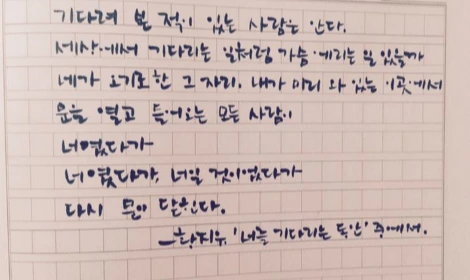 기다려 본 적이 있는 사람은 안다.
세상에서 기다리는 일처럼 가슴 에리는 일 있을까
네가 오기로 한 그 자리. 내가 미리 와 있는 이곳에서
문을 열고 들어오는 모든 사람이
너였다가
너였다가, 너일 것이었다가
다시 문이 닫힌다.
—황지우, '너를 기다리는 동안' 中에서.